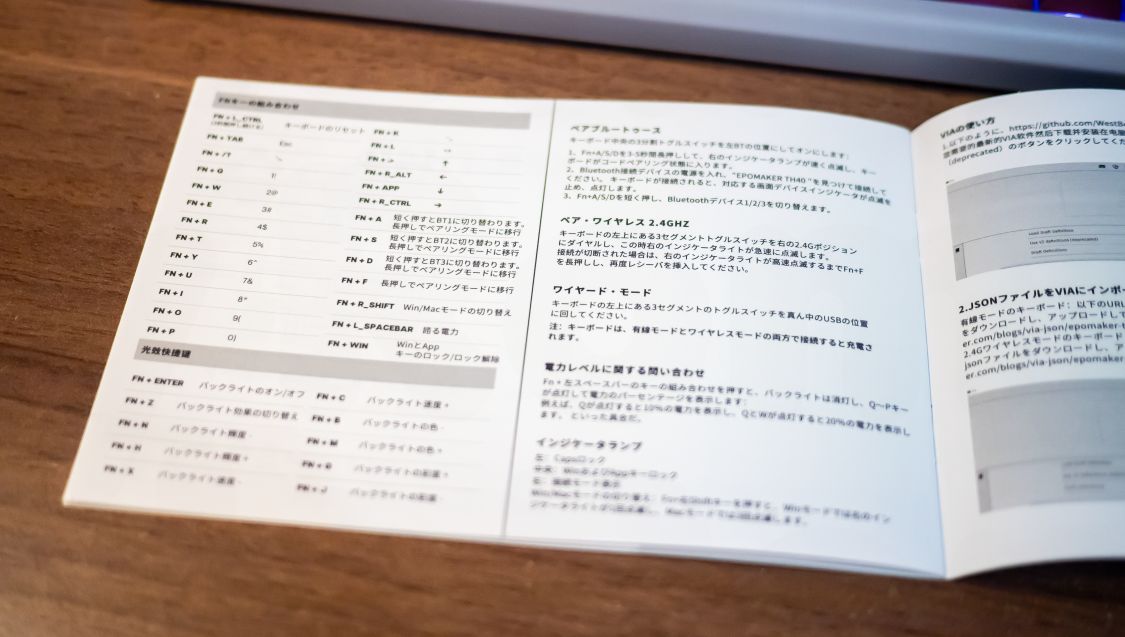 FNキーの組み合わせ
FN + L_CTRL
キーボードのリセット
FN + TAB
Esc
FN + Q
1!
FN + W
2@
FN + E
3#
FN + R
4$
FN + T
5%
FN + Y
6^
FN + U
7&
FN + I
8*
FN + O
9(
FN + P
0)
FN + K
FN + L
FN + R_ALT
←
FN + APP
↓
FN + R_CTRL
→
FN + A
短く押すとBT1に切り替わります。
長押しでペアリングモードに移行
FN + S
短く押すとBT2に切り替わります。
長押しでペアリングモードに移行
FN + D
短く押すとBT3に切り替わります。
長押しでペアリングモードに移行
FN + F
長押しでペアリングモードに移行
FN + R_SHIFT
Win/Macモードの切り替え
FN + L_SPACEBAR
諮る電力
FN + WIN
WinとApp
キーのロック/ロック解除
光效快捷键
FN + ENTER
バックライトのオン/オフ
FN + Z
バックライト効果の切り替え
FN + N
バックライト輝度 -
FN + H
バックライト輝度 +
FN + X
バックライト速度 -
FN + C
バックライト速度 +
FN + B
バックライトの色 -
FN + M
バックライトの色 +
バックライトの彩度 +
FN + J
バックライトの彩度 -
ペアブルートゥース
キーボード中央の3分割トグルスイッチを左BTの位置にしてオンにします:
1、Fn+A/S/Dを3-5秒間長押しして、右のインジケータランプが速く点滅し、キー
ボードがコードペアリング状態に入ります。
2、Bluetooth接続デバイスの電源を入れ、"EPOMAKER TH40 "を見つけて接続して
ください。キーボードが接続されると、対応する画面デバイスインジケータが点滅を
止め、点灯します。
3、Fn+A/S/Dを短く押し、Bluetoothデバイス1/2/3を切り替えます。
ペア・ワイヤレス 2.4GHZ
キーボードの左上にある3セグメントトグルスイッチを右の2.4Gポジション
にダイヤルし、この時右のインジケータライトが急速に点滅します。
接続が切断された場合は、右のインジケータライトが高速点滅するまでFn+F
を長押しし、再度レシーバを挿入してください。
ワイヤード・モード
キーボードの左上にある3セグメントのトグルスイッチを真ん中のUSBの位置
に回してください。
注: キーボードは、有線モードとワイヤレスモードの両方で接続すると充電さ
れます。
電力レベルに関する問い合わせ
Fn + 左スペースバーのキーの組み合わせを押すと、バックライトは消灯し、Q〜Pキー
が点灯して電力のパーセンテージを表示します:
例えば、Qが点灯すると10%の電力を表示し、QとWが点灯すると20%の電力を表示し
ます、といった具合だ。
インジケータランプ
左: Capsロック
中央: WinおよびAppキーロック
右: 接続モード表示
VIAの使い方
1.以下のように、https://github.com/WestBe
您需要的最新的VIA软件然后下载并安装在电脑
(deprecated) のボタンをクリックしてくだ
2.JSONファイルをVIAにインポー
有線モードのキーボード: 以下のURL
をダウンロードし、アップロードして
er.com/blogs/via-json/epomaker-t
2.4Gワイヤレスモードのキーボード
jsonファイルをダウンロードし、ア
er.com/blogs/via-json/epomaker